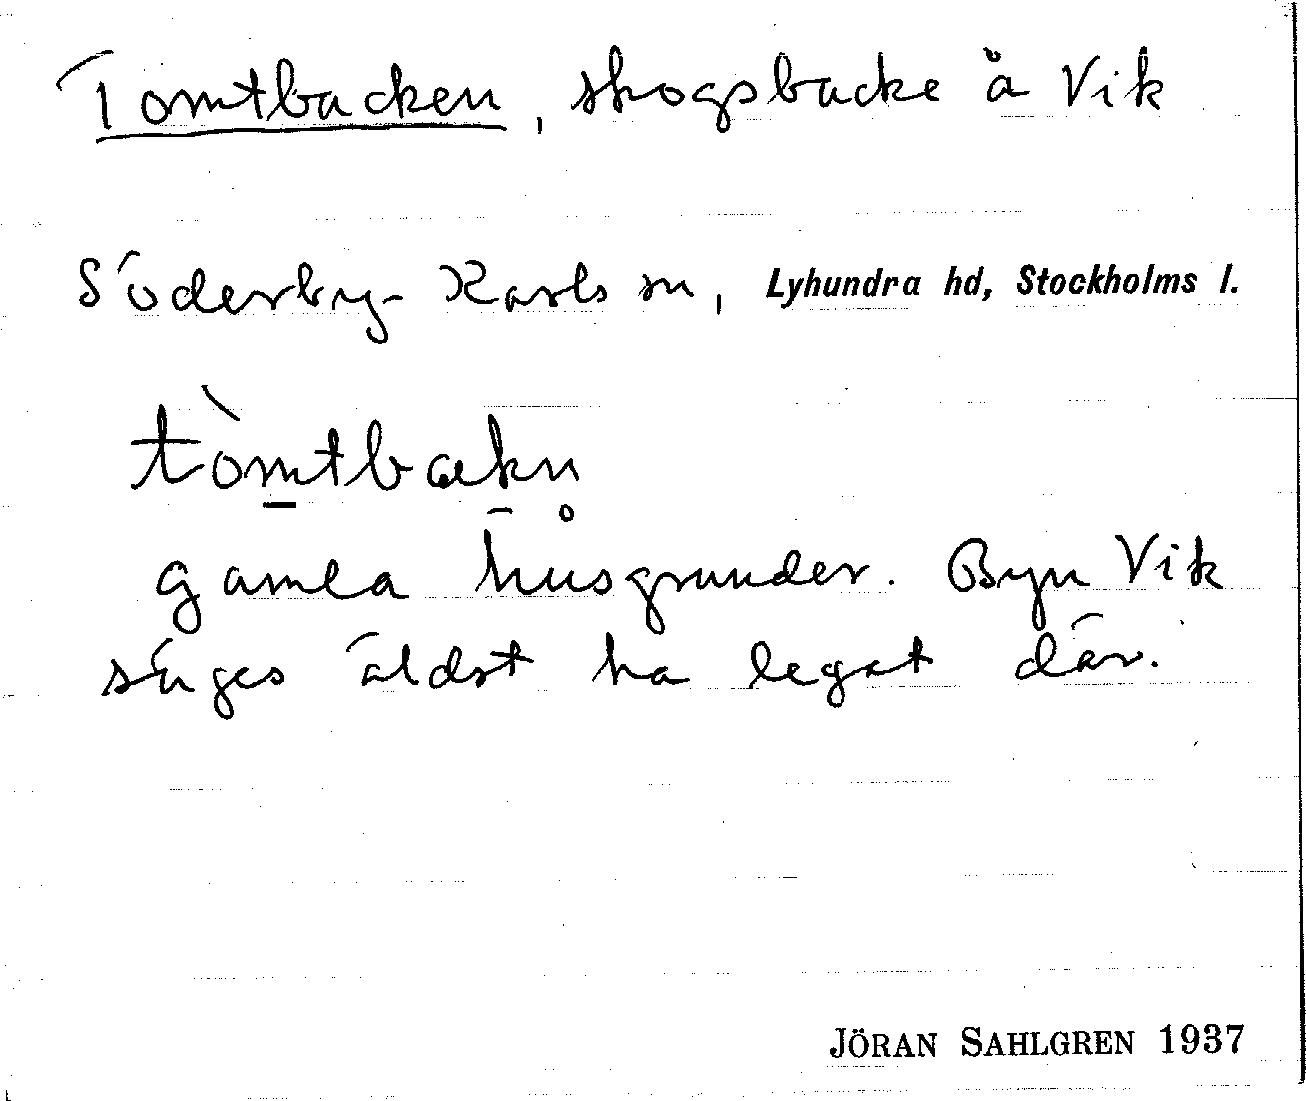 Tomtbacken, skogsbacke å Vik
Söderby-Karls sn, Lyhundra hd, Stockholms l.
tòmtbakn̥
gamla husgrunder. Byn Vik
säges äldst ha legat där.
JÖRAN SAHLGREN 1937